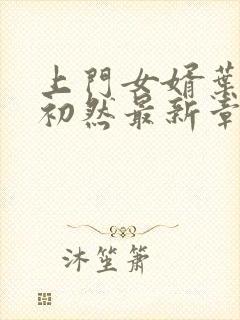 上門女婿葉
初然最新章
沐笙簫